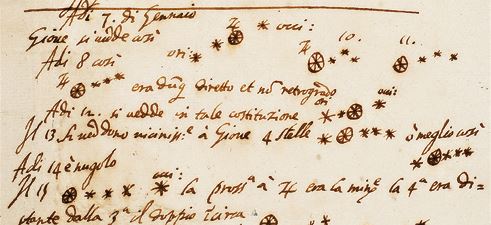 Adi 7. di Gennaio
Gione si vedde così ♃ occi:
Adi 8 così ori: ♃ 10. 11.
♃ era dunq̃ diretto et nõ retrogrado
Adi 12. si vedde in tale costituzione ori occi:
Il 13 si veddono vicinissẽ à Gione 4 stelle ò meglio così
Adi 14 è nugolo
Il 15 occi: la prossª à ♃ era la minẽ la 4ª era di=
stante dalla 3ª il doppio circa